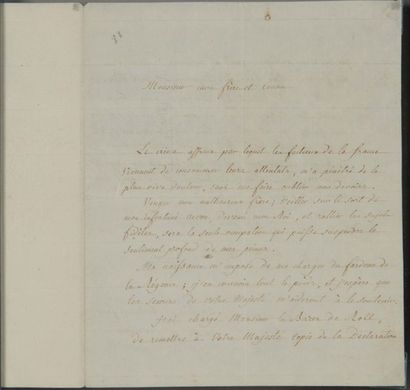 Monsieur mon frère et cousin
Le crime affreux par lequel les factieux de la france
viennent de consommer leurs attentats, m'a pénétré de la
plus vive douleur, sans me faire oublier mes devoirs.
Venger mon malheureux frère; veiller sur le sort de
mon infortuné neveu, devenu mon Roi, et rallier les sujets
fidèles, sera la seule occupation qui puisse suspendre le
sentiment profond de mes peines.
Ma naissance m'impose de me charger du fardeau de
la Régence; j'en connois tout le poids, et j'espère que
les secours de Votre Majesté m'aideront à le soutenir.
J'ai chargé Monsieur le Baron de Roll,
de remettre à Votre Majesté copie de la Déclaration